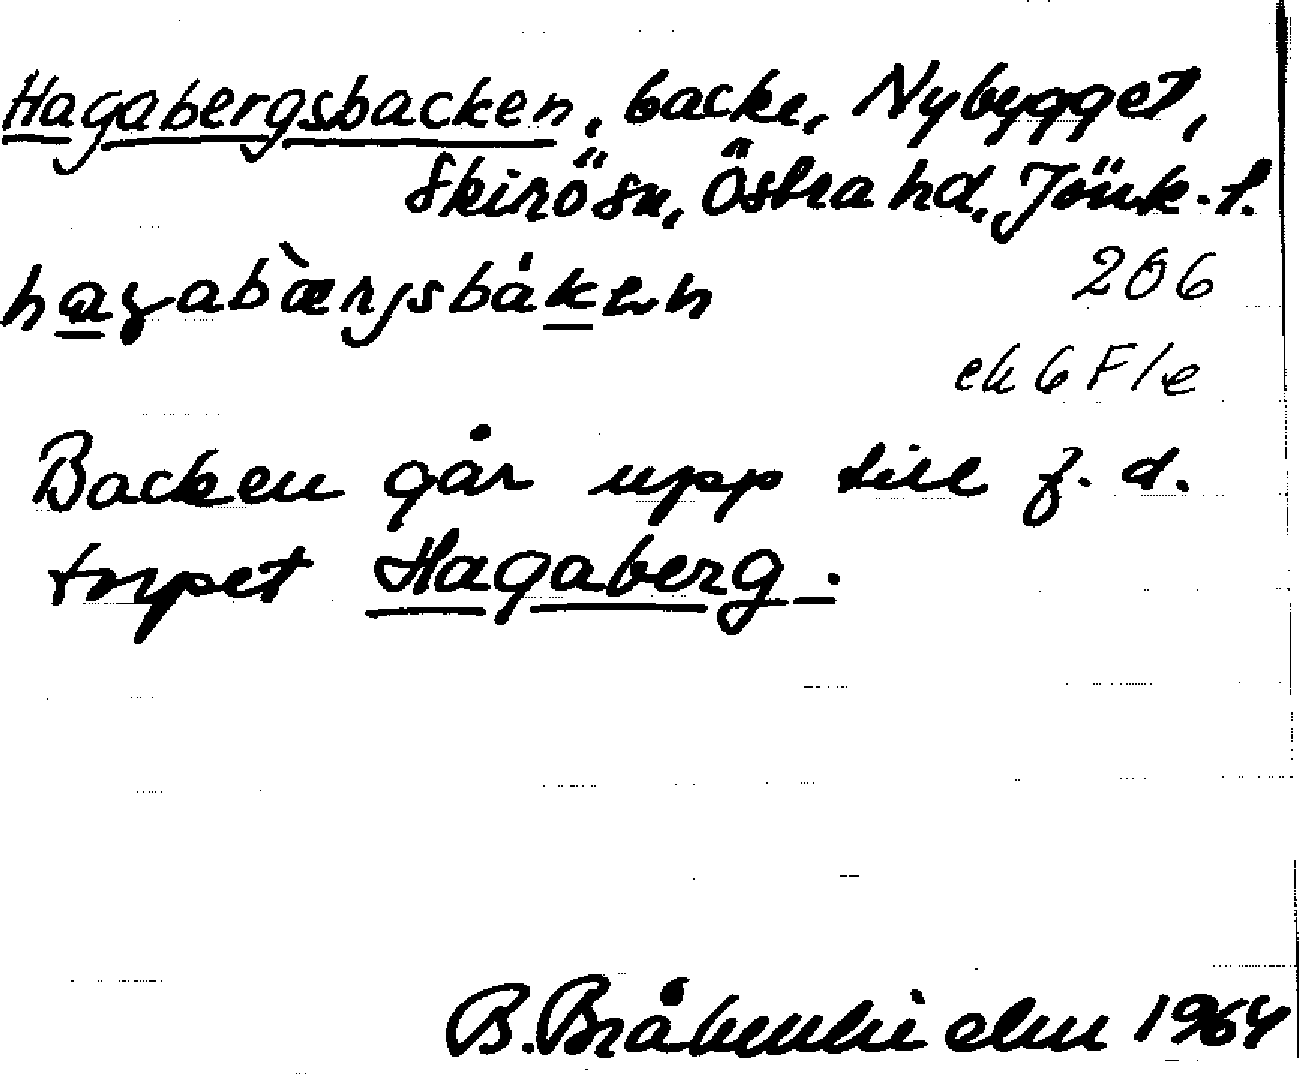 Hagabergsbacken, backe, Nybygget,
Skirö sn, Östra hd, Jönk. l.
hagabàrgsbåken
206
ek 6 F/e
Backen går upp till f. d.
torpet Hagaberg.
B. 1964